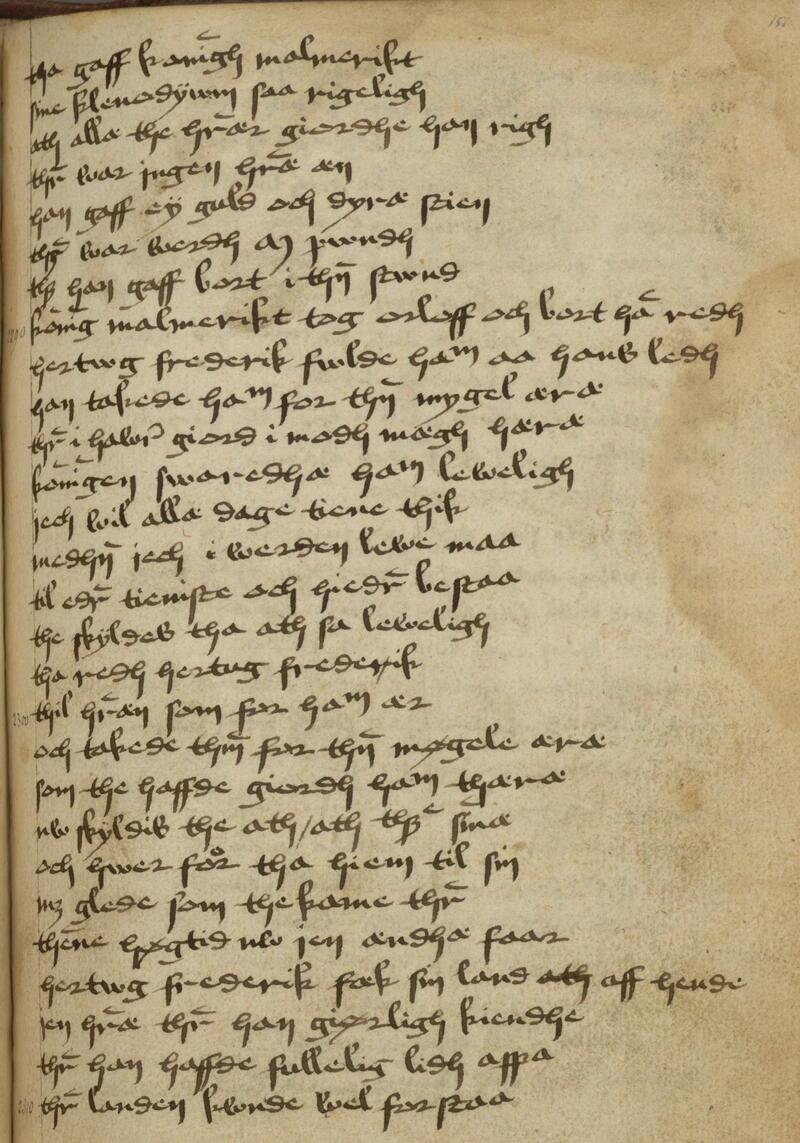 tha gaff konni̅gh malmerikt
sine klenodÿwm saa rigeligh
ath allæ the hr̅ær giordhe han righ
thr̅ war jngen hr̅æ æn
han gaff eÿ guld och dyræ stien
thr̅ war werdh pwndh
han gaff bort i thn̅ stwnd
koni̅g malmerikt tog orloff och bort ha̅ redh
hertwg frederik fwlde haᵐ aa hans ledh
han takede haᵐ for thn̅ mygel æræ
thr̅ i hawr̅ giord i modh mægh hæræ
koni̅gen swaredhæ haᵐ leweligh
jech wil allæ dage tiene thik
medhn̅ jech i werden lewe maa
til edr̅ tieniste och hiedr̅ bestaa
the skÿldes tha ath sa leweligh
tha redh hertug frederik
thil hr̅æn som for haᵐ ær
och takede thm̅ for thn̅ møgele æræ
som the haffde giordh haᵐ thæræ
nw skÿldis the ath/ath sinæ
och hwer foor tha hiem til sin
mz glede som the kame thr̅
then̅e høgtid nw jen ændhæ faar
hertwg frederik fæk sin land ath aff hende
jen hr̅æ thr̅ han giørligh kiendhe
thr̅ han haffde fullelig lidh appa
thr̅ landen kwnde wel forstaa